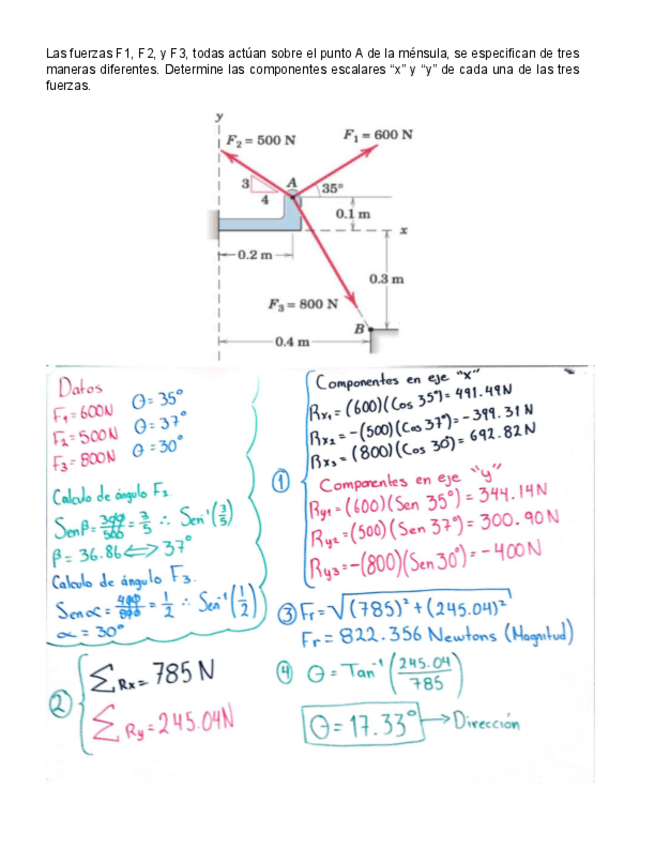 Las fuerzas F1, F2, y F3, todas actúan sobre el punto A de la ménsula, se especifican de tres
maneras diferentes. Determine las componentes escalares "x" y "y" de cada una de las tres
fuerzas.
y
F₂ = 500 N
F₁ = 600 N
3
4
A
35°
0.1 m
x
0.2 m
0.3 m
F₃ = 800 N
B
0.4 m
Datos
F₁=600N θ=35°
F₂=500N θ=37°
F₃=800N θ=30°
Calculo de ángulo F₂
Senβ=300/500=3/5 ∴ Sen⁻¹(3/5)
β=36.86⟺37°
Calculo de ángulo F₃.
Senα=400/800=1/2 ∴ Sen⁻¹(1/2)
α=30°
①
Componentes en eje "x"
Rx₁=(600)(Cos 35°)=491.49N
Rx₂=-(500)(Cos 37°)=-399.31N
Rx₃=(800)(Cos 30°)=692.82N
Componentes en eje "y"
Ry₁=(600)(Sen 35°)=344.14N
Ry₂=(500)(Sen 37°)=300.90N
Ry₃=-(800)(Sen 30°)=-400N
②
ΣRx=785N
ΣRy=245.04N
③ Fr=√(785)²+(245.04)²
Fr=822.356 Newtons (Magnitud)
④ θ=Tan⁻¹(245.04/785)
θ=17.33°→Dirección